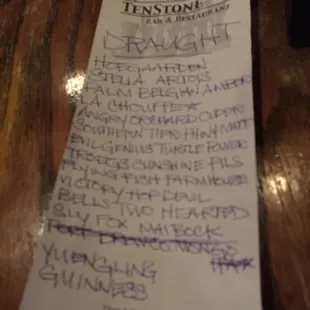 TENSTONE
BAR & RESTAURANT
DRAUGHT
HOEGAARDEN
STELLA ARTOIS
PALM BELGIAN AMBER
LA CHOUFFE
ANGRY ORCHARD CIDER
SOUTHERN TIER PHIN/MATT
EVIL GENIUS TURTLE POWER
TROEGS SUNSHINE PILS
FLYING FISH FARMHOUSE
VICTORY HOP DEVIL
BELLS TWO HEARTED
SLY FOX MAIBOCK
YUENGLING
GUINNESS